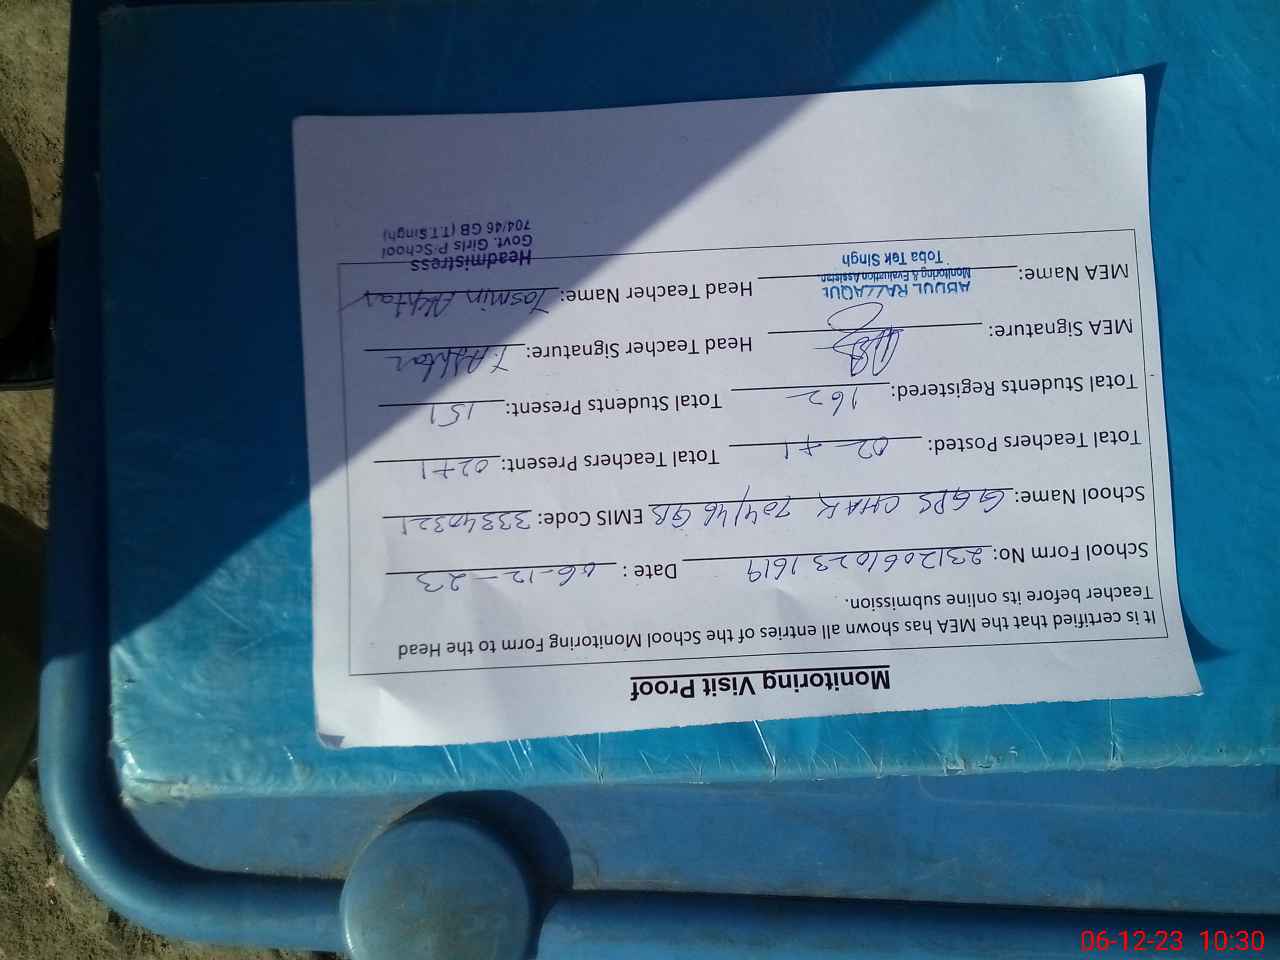 Monitoring Visit Proof
It is certified that the MEA has shown all entries of the School Monitoring Form to the Head
Teacher before its online submission.
School Form No: 23120610231619 Date : 06-12-23
School Name: GGPS CHAK 704/46 GB EMIS Code: 33340321
Total Teachers Posted: 02+1 Total Teachers Present: 02+1
Total Students Registered: 162 Total Students Present: 151
MEA Signature: Head Teacher Signature: Y.Akhtar
MEA Name: ABDUL RAZZAQUE Head Teacher Name: Yasmin Akhtar
Monitoring & Evaluation Assistan
Toba Tek Singh
Headmistress
Govt. Girls P/School
704/46 GB (T.T.Singh)
06-12-23 10:30